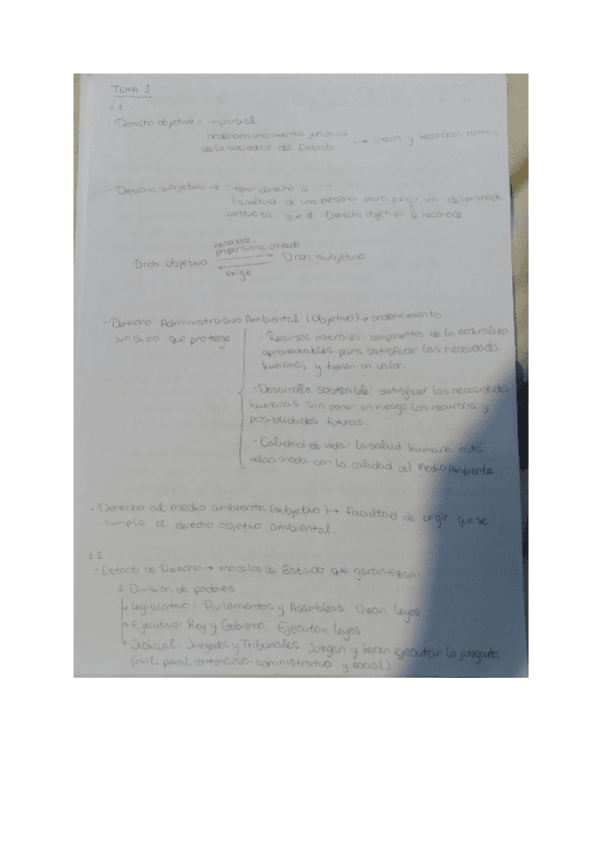 TEMA 1
1.1
· Derecho objetivo: imparcial
ordenamiento jurídico
de la sociedad del Estado → crean y reconocen normas
· Derecho subjetivo → "tener derecho a ..."
Facultad de una persona para exigir una determinada
conducta que el Derecho objetivo le reconoce
reconoce,
proporciona, concede
Drch objetivo Drch subjetivo
exige
· Derecho Administrativo Ambiental (Objetivo) → ordenamiento
jurídico que protege · Recursos naturales: componentes de la naturaleza
aprovechables para satisfacer las necesidades
humanas y tienen un valor.
· Desarrollo sostenible: satisfacer las necesidades
humanas sin poner en riesgo los recursos y
posibilidades futuras
· Calidad de vida: la salud humana está
relacionada con la calidad del Medio Ambiente
· Derecho al medio ambiente (subjetivo) → Facultad de exigir que se
cumpla el derecho objetivo ambiental.
1.2
· Estado de Derecho → modelos de Estado que garantizan:
1. División de poderes
Legislativo: Parlamentos y Asambleas. Crean leyes
Ejecutivo: Rey y Gobierno. Ejecutan leyes
Judicial: Juzgados y Tribunales. Juzgan y hacen ejecutar lo juzgado
(civil, penal, contencioso-administrativo y social)